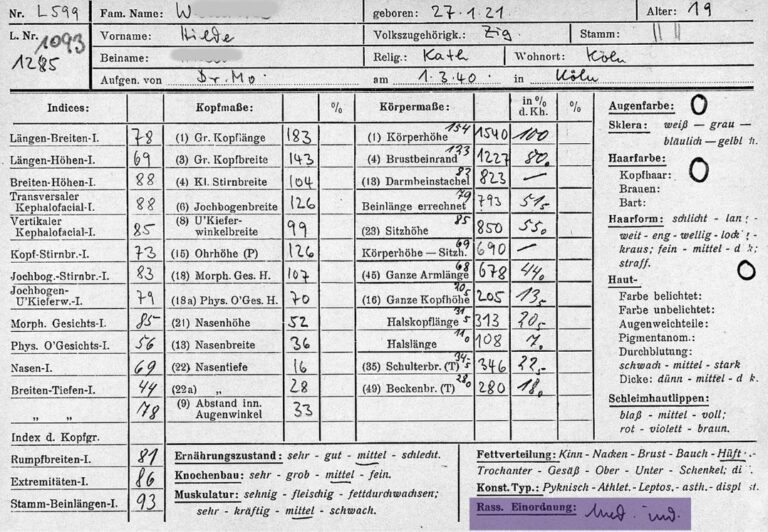 Nr. L 599 Fam. Name: W geboren: 27.1.21 Alter: 19
L. Nr. 1093 Vorname: Hilde Volkszugehörigk.: Zig. Stamm: " "
1285 Beiname: Relig.: Kath Wohnort: Köln
Aufgen. von Dr. Mo. am 1.3.40 in Köln
Indices: Kopfmaße: % Körpermaße: in % d. Kh. %
Längen-Breiten-I. 78 (1) Gr. Kopflänge 183 (1) Körperhöhe 154 1540 100
Längen-Höhen-I. 69 (3) Gr. Kopfbreite 143 (4) Brustbeinrand 133 1227 80.
Breiten-Höhen-I. 88 (4) Kl. Stirnbreite 104 (13) Darmbeinstachel 83 823 —
Transversaler Kephalofacial-I. 88 (6) Jochbogenbreite 126 Beinlänge errechnet 79 793 51.
Vertikaler Kephalofacial-I. 85 (8) U'Kiefer-winkelbreite 99 (23) Sitzhöhe 85 850 55.
Kopf-Stirnbr.-I. 73 (15) Ohrhöhe (P) 126 Körperhöhe — Sitzh. 69 690 —
Jochbog.-Stirnbr.-I. 83 (18) Morph. Ges. H. 107 (45) Ganze Armlänge 68 678 44.
Jochbogen-U'Kieferw.-I. 79 (18a) Phys. O'Ges. H. 70 (16) Ganze Kopfhöhe 205 13.
Morph. Gesichts-I. 85 (21) Nasenhöhe 52 Halskopflänge 313 20.
Phys. O'Gesichts-I. 56 (13) Nasenbreite 36 Halslänge 108 7.
Nasen-I. 69 (22) Nasentiefe 16 (35) Schulterbr. (T) 346 22.
Breiten-Tiefen-I. 44 (22a) " 28 (49) Beckenbr. (T) 280 18.
" " 78 (9) Abstand inn. Augenwinkel 33
Index d. Kopfgr.
Rumpfbreiten-I. 81
Extremitäten-I. 86
Stamm-Beinlängen-I. 93
Augenfarbe:
Sklera: weiß — grau —
bläulich — gelbl
Haarfarbe:
Kopfhaar:
Brauen:
Bart:
Haarform: schlicht - lan
weit - eng - wellig - lock
kraus; fein - mittel - d k;
straff.
Haut-
Farbe belichtet:
Farbe unbelichtet:
Augenweichteile:
Pigmentanom.:
Durchblutung:
schwach - mittel - stark
Dicke: dünn - mittel - d k.
Schleimhautlippen:
blaß - mittel - voll;
rot - violett - braun.
Ernährungszustand: sehr - gut - mittel - schlecht.
Knochenbau: sehr - grob - mittel - fein.
Muskulatur: sehnig - fleischig - fettdurchwachsen;
sehr - kräftig - mittel - schwach.
Fettverteilung: Kinn - Nacken - Brust - Bauch - Hüft
Trochanter - Gesäß - Ober - Unter - Schenkel; di
Konst. Typ.: Pyknisch - Athlet.- Leptos.- asth.- displ st.
Rass. Einordnung: Med. ind.